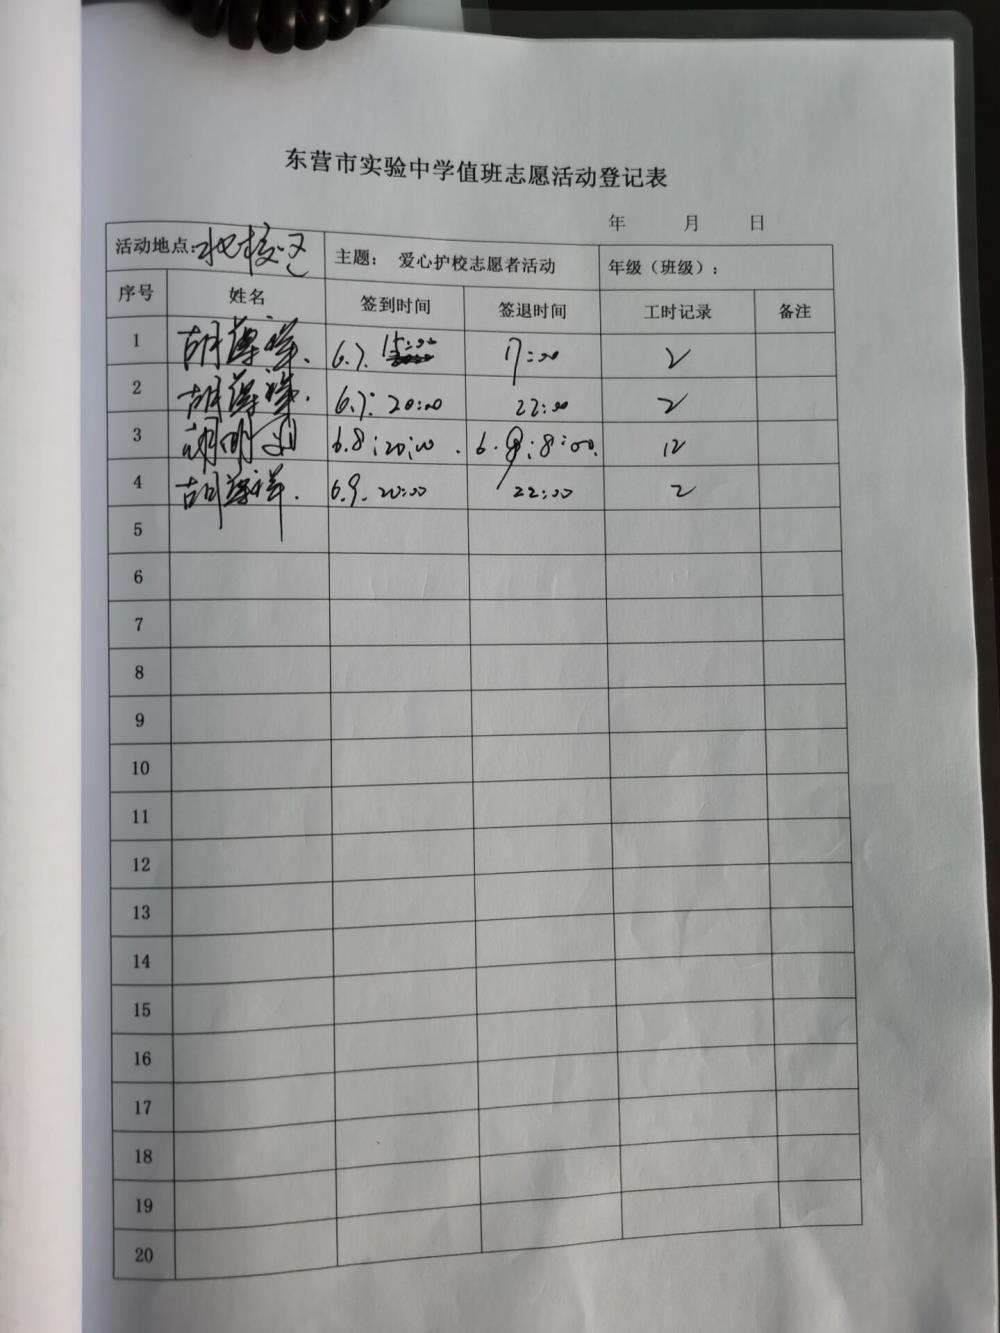 东营市实验中学值班志愿活动登记表
年 月 日
活动地点: 北校区 主题： 爱心护校志愿者活动 年级（班级）：
序号 姓名 签到时间 签退时间 工时记录 备注
1 胡 祥. 6.7. 15:00 17:00 2
2 胡 祥. 6.7: 20:00 22:00 2
3 胡明 6.8:20:00. 6.9:8:00. 12
4 胡 祥. 6.9.20:00 22:00 2
5
6
7
8
9
10
11
12
13
14
15
16
17
18
19
20